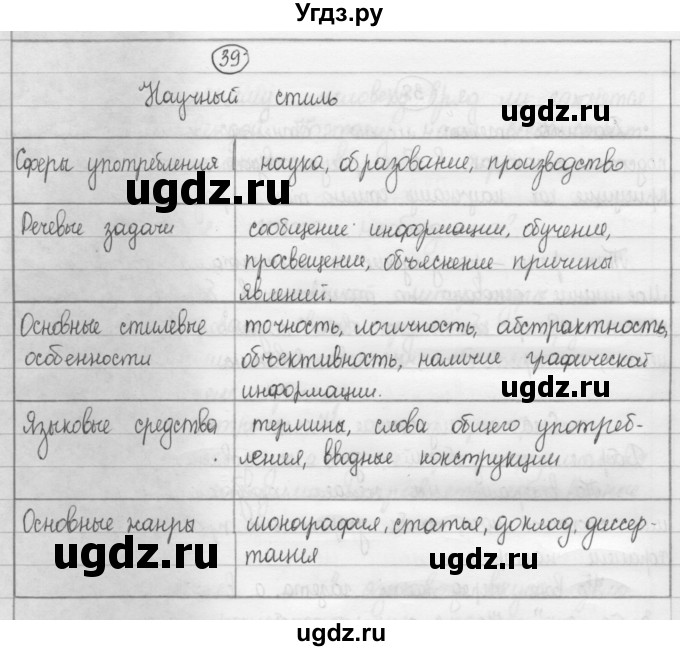 Угдз.ру
39
Научный стиль
ugdz.ru
Сферы употребления наука, образование, производство
ugdz.ru
ugdz.ru
Речевые задачи сообщение информации, обучение,
просвещение, объяснение причины
явлений.
Основные стилевые точность, логичность, абстрактность,
особенности объективность, наличие графической
ugdz.ru
ugdz.ru
информации.
Языковые средства термины, слова общего употреб-
ления, вводные конструкции
Основные жанры монография, статья, доклад, диссер-
тация
ugdz.ru
ugdz.ru
ugdz.ru